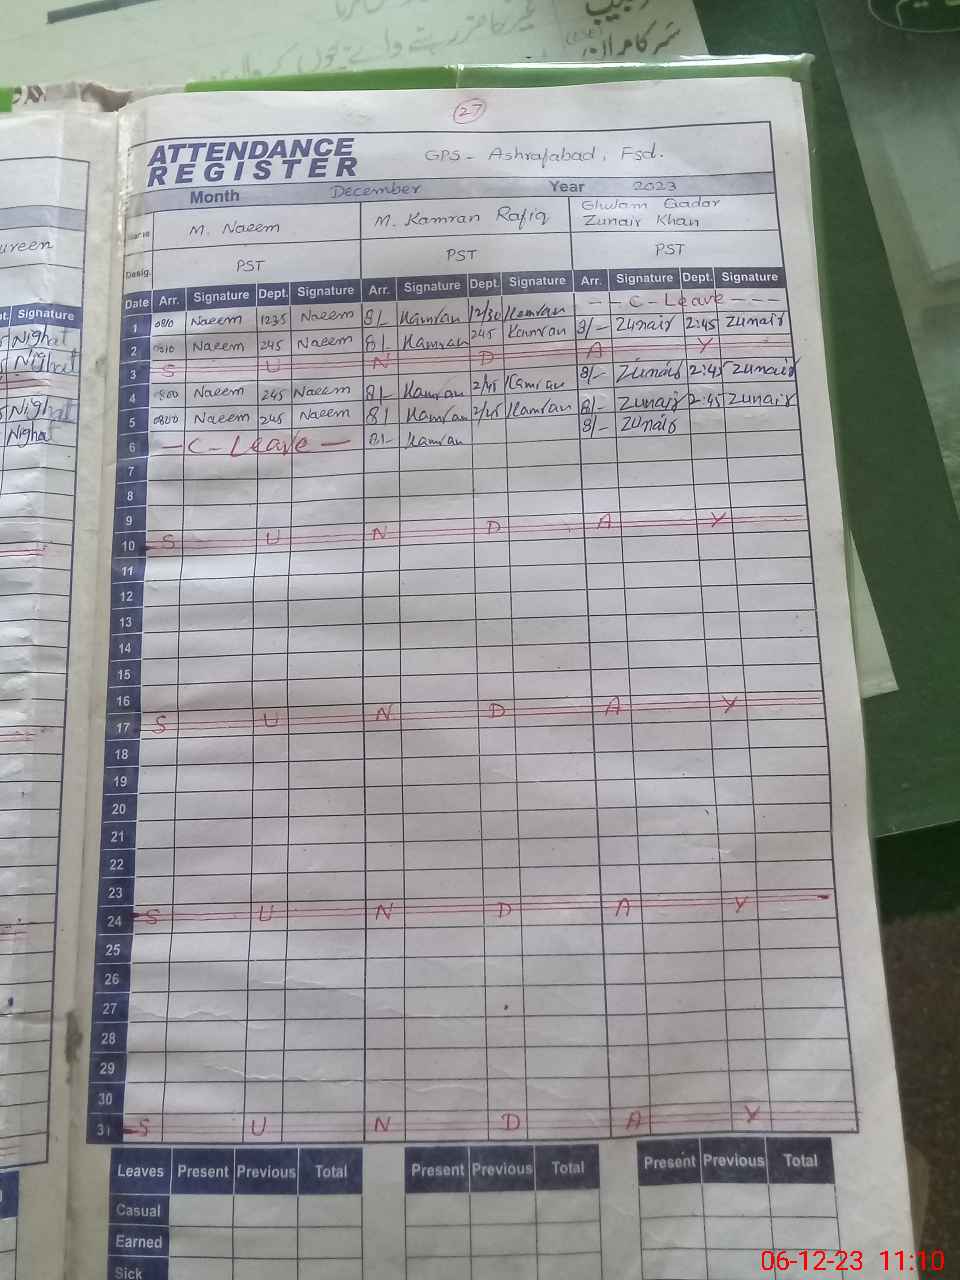 27
ATTENDANCE
REGISTER
GPS - Ashrafabad, Fsd.
Month December Year 2023
M. Naeem M. Kamran Rafiq Ghulam Qadar
Zunair Khan
Desig. PST PST PST
Date Arr. Signature Dept. Signature Arr. Signature Dept. Signature Arr. Signature Dept. Signature
1 0810 Naeem 1235 Naeem 8/- Kamran 12/30 Kamran - - C - Leave - - -
2 0810 Naeem 245 Naeem 8/- Kamran 245 Kamran 8/- Zunair 2:45 Zunair
3 S U N D A Y
4 0800 Naeem 245 Naeem 8/- Kamran 2/45 Kamran 8/- Zunair 2:45 Zunair
5 0800 Naeem 245 Naeem 8/- Kamran 2/45 Kamran 8/- Zunair 2:45 Zunair
6 - C - Leave - 8/- Kamran 8/- Zunair
7
8
9
10 S U N D A Y
11
12
13
14
15
16
17 S U N D A Y
18
19
20
21
22
23
24 S U N D A Y
25
26
27
28
29
30
31 S U N D A Y
Leaves Present Previous Total Present Previous Total Present Previous Total
Casual
Earned
Sick
ureen
Signature
Nighat
Nighat
Nighat
Nighat
06-12-23 11:10